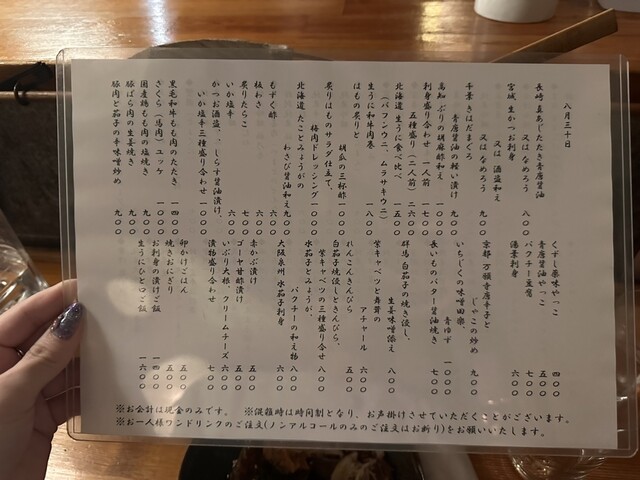 八月三十日
長崎 真あじたたき青唐醤油
又はなめろう 八〇〇
宮城 生かつお刺身
又は 酒盗和え
又はなめろう 九〇〇
千葉 きはだまぐろ
青唐醤油の軽い漬け 九〇〇
高知 ぶりの胡麻酢和え 一〇〇〇
刺身盛り合わせ 一人前 一七〇〇
五種盛り(二人前) 二六〇〇
北海道 生うに食べ比べ 一五〇〇
(バフンウニ、ムラサキウニ)
生うに和牛肉巻 一八〇〇
はもの炙りと
胡瓜の三杯酢 一〇〇〇
炙りはものサラダ仕立て、
梅肉ドレッシング 一〇〇〇
北海道 たことみょうがの
わさび醤油和え 九〇〇
もずく酢 六〇〇
板わさ 六〇〇
炙りたらこ 七〇〇
いか塩辛 六〇〇
かつお酒盗、しらす醤油漬け、
いか塩辛三種盛り合わせ 一〇〇〇
黒毛和牛もも肉のたたき 一四〇〇
さくら(馬肉)ユッケ 一〇〇〇
国産鶏もも肉の塩焼き 九〇〇
豚ばら肉の生姜焼き 九〇〇
豚肉と茄子の辛味噌炒め 九〇〇
くずし薬味やっこ 四〇〇
青唐醤油やっこ 五〇〇
パクチー豆腐 七〇〇
湯葉刺身 六〇〇
京都 万願寺唐辛子と
じゃこの炒め 九〇〇
いちじくの味噌田楽、
青ゆず 一〇〇〇
長いものバター醤油焼き 七〇〇
群馬 白茄子の焼き浸し、
生姜味噌添え 八〇〇
紫キャベツと舞茸の
アチャール 六〇〇
れんこんきんぴら 五〇〇
白茄子焼浸しときんぴら、
紫キャベツの三種盛り合せ 八〇〇
水茄子とみょうが、
パクチーの和え物 八〇〇
大阪泉州 水茄子刺身 六〇〇
赤かぶ漬け 五〇〇
ゴーヤ甘酢漬け 五〇〇
いぶり大根、クリームチーズ 六〇〇
漬物盛り合わせ 七〇〇
卵かけごはん 五〇〇
焼きおにぎり 五〇〇
お刺身の漬けご飯 一四〇〇
生うにひと口ご飯 一六〇〇
※お会計は現金のみです。 ※混雑時は時間制となり、お声掛けさせていただくことがございます。
※お一人様ワンドリンクのご注文(ノンアルコールのみのご注文はお断り)をお願いいたします。